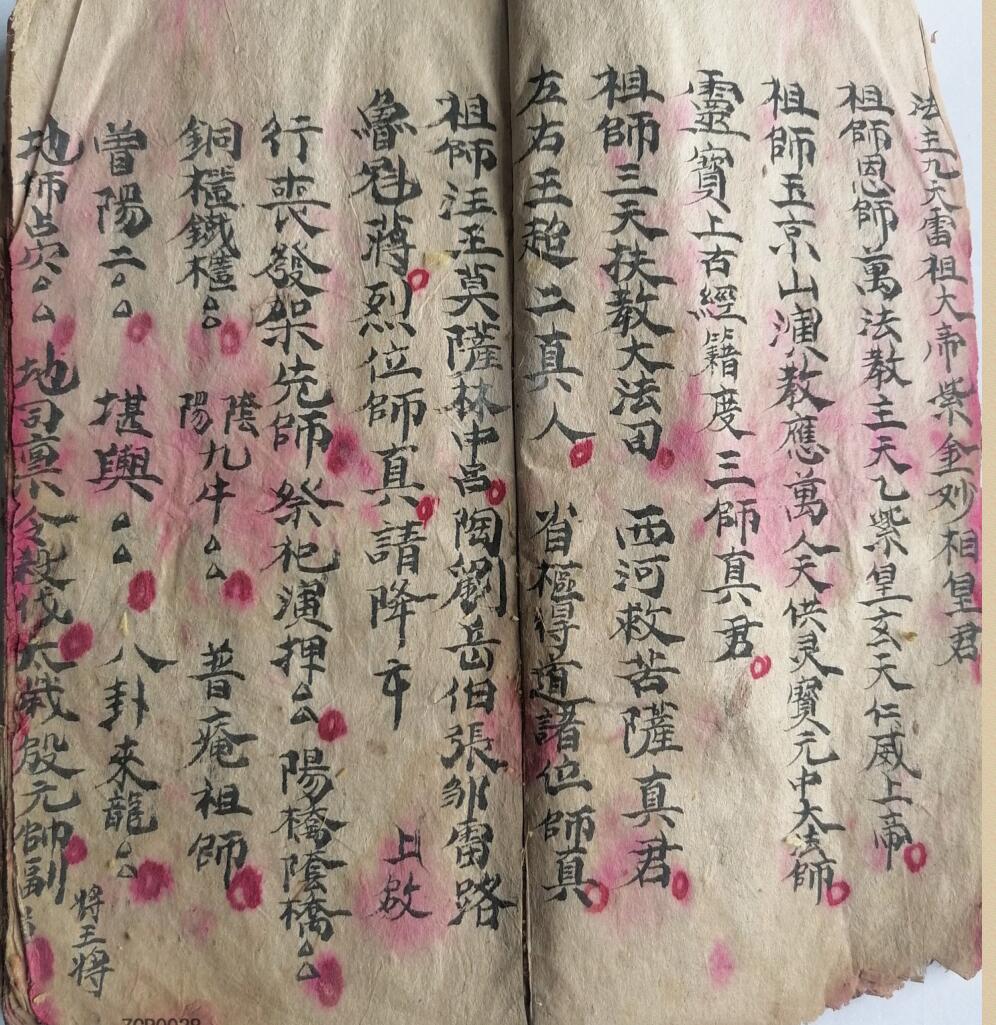 法主九天雷祖大帝紫金妙相皇君
祖師恩師萬法教主天乙紫皇玄天仁威上帝
祖師玉京山演教應萬人天供灵寶元中大法師
靈寶上古經籍度三師真君
祖師三天扶教大法田 西河救苦薩真君
左右王趙二真人 省樞得道諸位師真
祖師汪王莫薩林中呂陶劉岳伯張鄒雷路
魯 蔣烈位師真請降 上啟
行喪發架先師 祭祀演押 陽橋陰橋
銅櫃鐵櫃 陰陽九牛 普庵祖師
曾陽二 堪輿 八卦來龍
地師占穴 地司 殺伐太歲殷元帥副
將王將